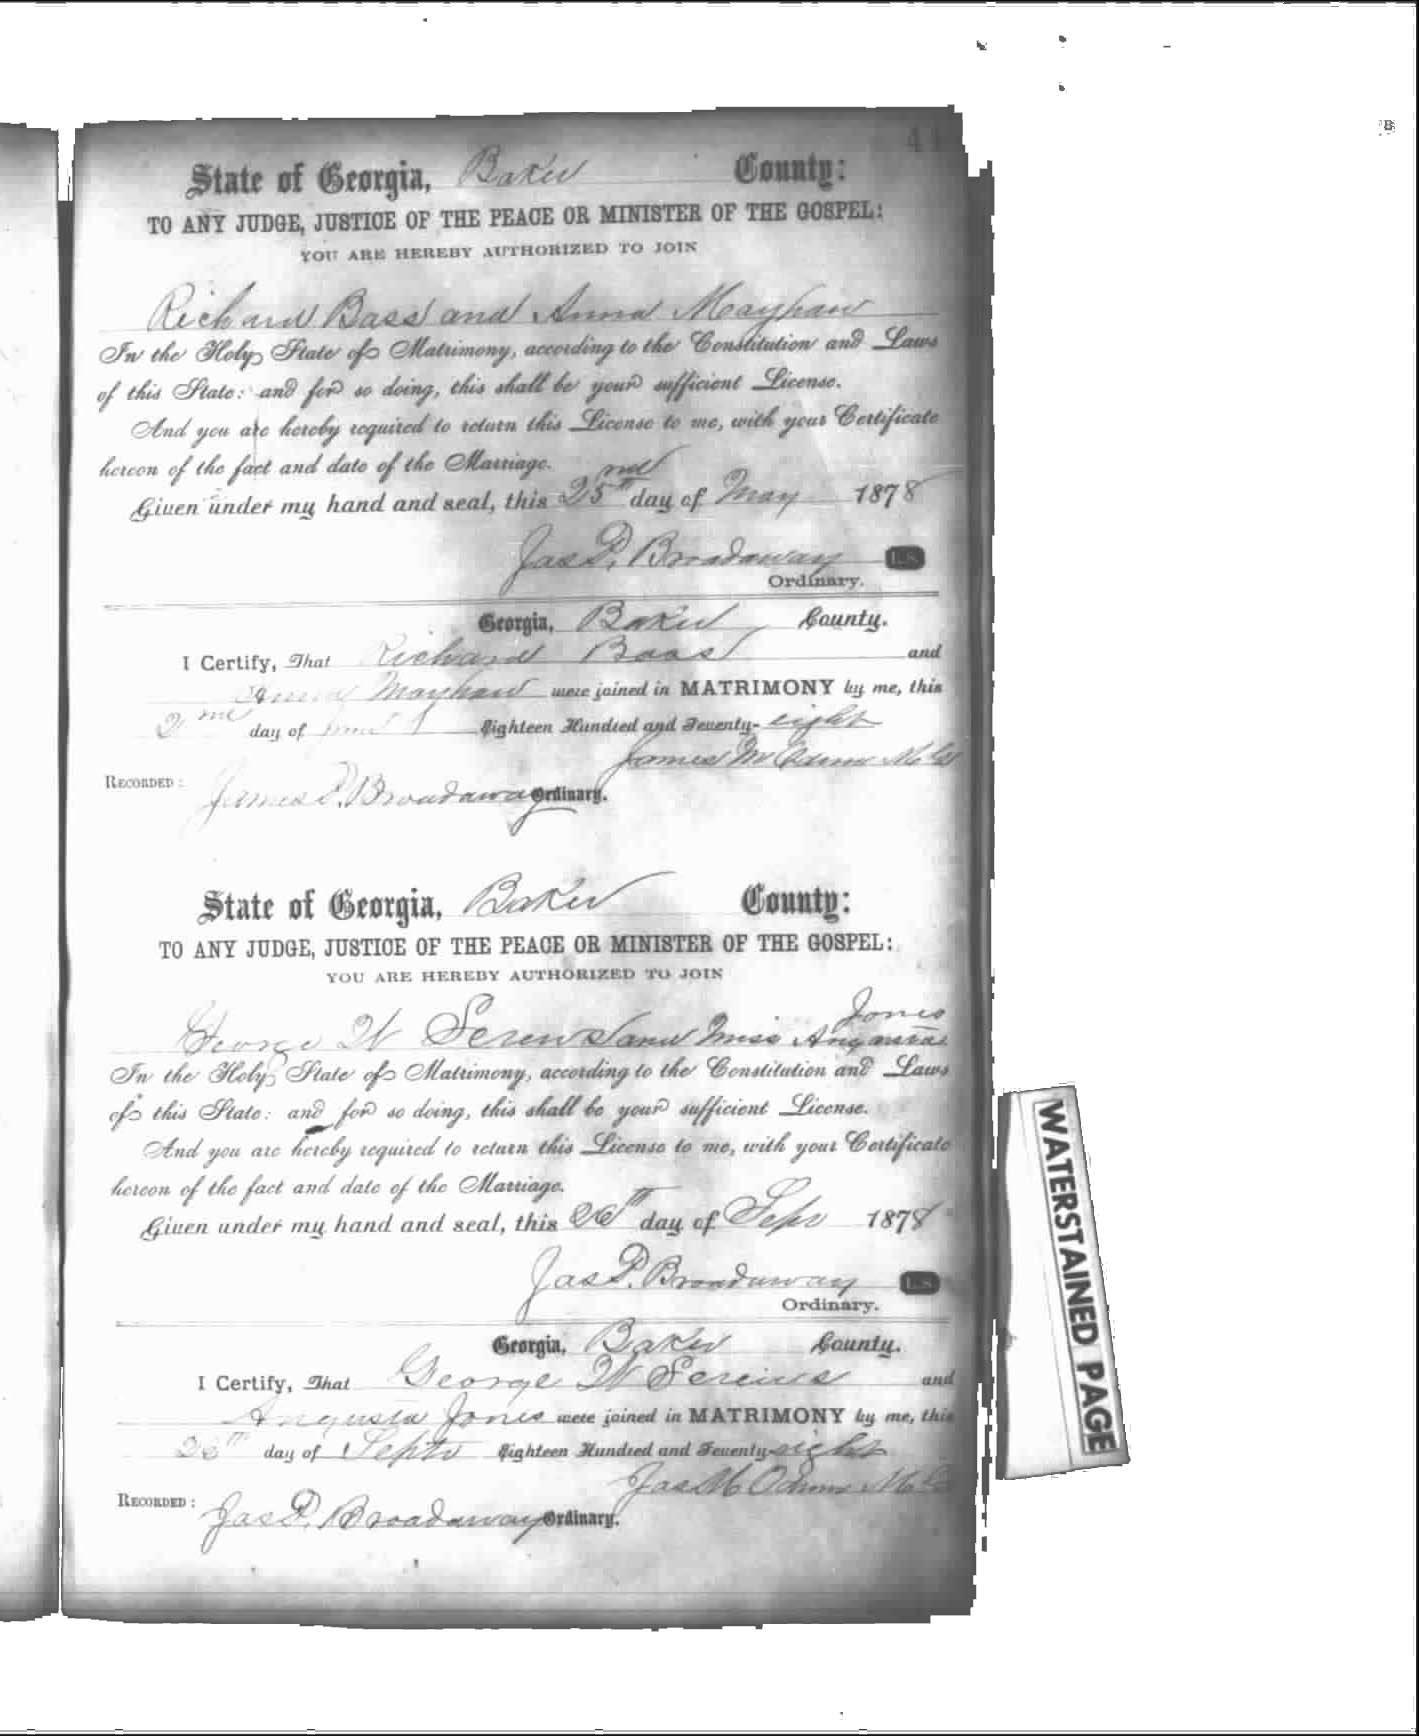 41
State of Georgia, Baker County:
TO ANY JUDGE, JUSTICE OF THE PEACE OR MINISTER OF THE GOSPEL:
YOU ARE HEREBY AUTHORIZED TO JOIN
Richard Bass and Anna Mayhaw
In the Holy State of Matrimony, according to the Constitution and Laws
of this State: and for so doing, this shall be your sufficient License.
And you are hereby required to return this License to me, with your Certificate
hereon of the fact and date of the Marriage.
Given under my hand and seal, this 25th day of May 1878
Jas P. Broadaway L.S.
Ordinary.
Georgia, Baker County.
I Certify, That Richard Bass and
Anna Mayhaw were joined in MATRIMONY by me, this
2 day of Eighteen Hundred and Seventy-eight
James M Odum
RECORDED: James P. Broadaway Ordinary.
State of Georgia, Baker County:
TO ANY JUDGE, JUSTICE OF THE PEACE OR MINISTER OF THE GOSPEL:
YOU ARE HEREBY AUTHORIZED TO JOIN
Jones
George W and Miss Augusta
In the Holy State of Matrimony, according to the Constitution and Laws
of this State: and for so doing, this shall be your sufficient License.
And you are hereby required to return this License to me, with your Certificate
hereon of the fact and date of the Marriage.
Given under my hand and seal, this 26th day of Sept 1878
Jas P. Broadaway L.S.
Ordinary.
Georgia, Baker County.
I Certify, That George W and
Augusta Jones were joined in MATRIMONY by me, this
26th day of Sept Eighteen Hundred and Seventy-eight
Jas M Odum
RECORDED: Jas P. Broadaway Ordinary.
WATERSTAINED PAGE